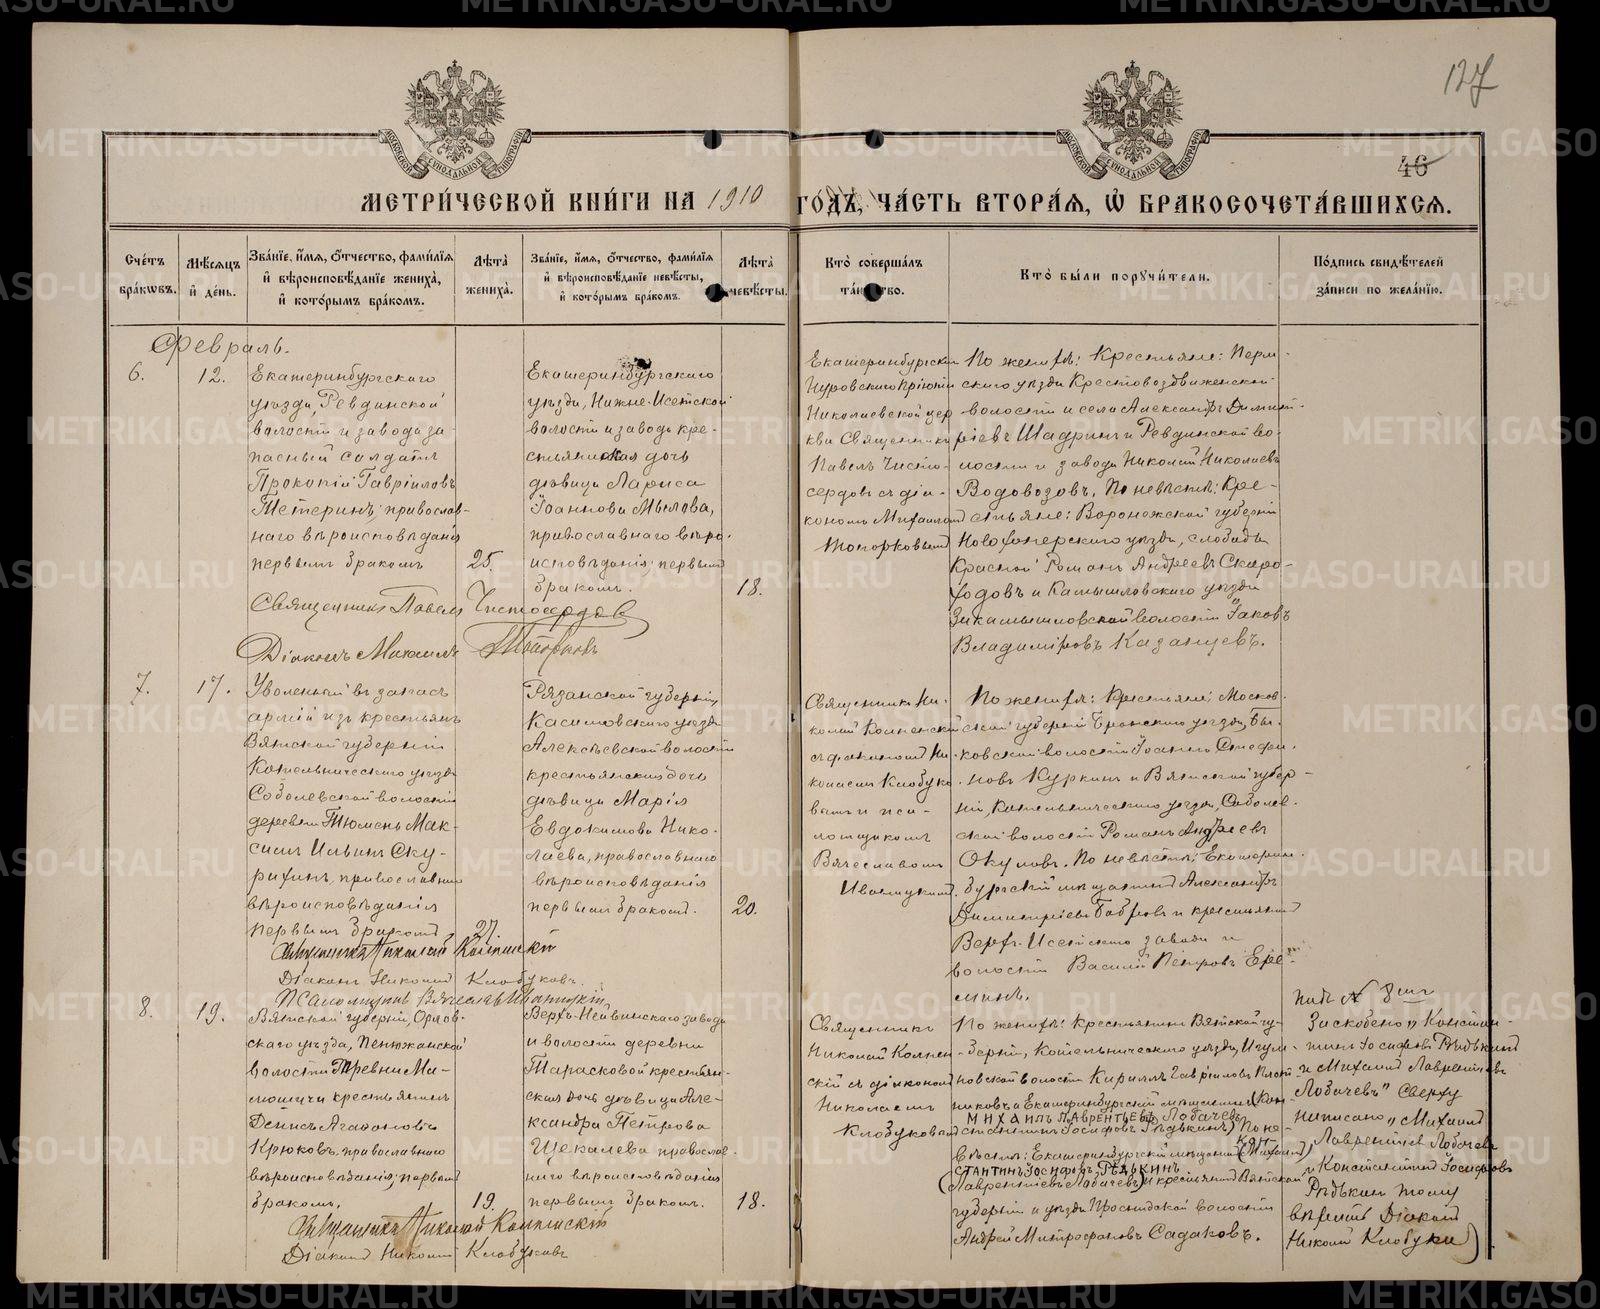 127
46
МЕТРИ́ЧЕСКОЙ КНИ́ГИ НА 1910 ГО́ДЪ, ЧА́СТЬ ВТОРА́Я, Ѽ БРАКОСОЧЕТА́ВШИХСЯ.
Сче́тъ бра́кѡвъ.
Мѣ́сяцъ и҆ де́нь.
Зва́нїе, и҆́мя, ѻ҆́тчество, фами́лїя и҆ вѣроисповѣ́данїе жениха̀, и҆ кото́рымъ бра́комъ.
Лѣ́та жениха̀.
Зва́нїе, и҆́мя, ѻ҆́тчество, фами́лїя и҆ вѣроисповѣ́данїе невѣ́сты, и҆ кото́рымъ бра́комъ.
Лѣ́та невѣ́сты.
Кто̀ соверша́лъ та́инство.
Кто̀ бы́ли порꙋчи́тели.
По́дпись свидѣ́телей за́писи по жела́нїю.
Февраль.
6.
12.
Екатеринбургскаго
уѣзда, Ревдинской
волости и завода за-
пасный солдатъ
Прокопій Гавріиловъ
Тетеринъ, православ-
наго вѣроисповѣданія
первымъ бракомъ
25.
Екатеринбургскаго
уѣзда, Нижне-Исетской
волости и завода кре-
стьянская дочь
дѣвица Лариса
Іоаннова Мылова,
православнаго вѣро-
исповѣданія, первымъ
бракомъ.
18.
Екатеринбургской
Нуровскаго пріюта
Николаевской цер-
кви Священникъ
Павелъ Чисто-
сердовъ съ діа-
кономъ Михаиломъ
Топорковымъ
По женихѣ: Крестьяне: Перм-
скаго уѣзда Крестовоздвиженской
волости и села Александръ Димит-
ріевъ Шадринъ и Ревдинской во-
лости и завода Николай Николаевъ
Водовозовъ. По невѣстѣ: Кре-
стьяне: Воронежской губерніи
Новохоперскаго уѣзда, слободы
Красной Романъ Андреевъ Скоро-
ходовъ и Камышловскаго уѣзда
Закамышловской волости Іаковъ
Владиміровъ Казанцевъ.
Священникъ Павелъ Чистосердовъ
Діаконъ Михаилъ Топорковъ
7.
17.
Уволенный въ запасъ
арміи изъ крестьянъ
Вятской губерніи
Котельническаго уѣзда
Соболевской волости
деревни Тюмень Мак-
симъ Ильинъ Ску-
рихинъ, православнаго
вѣроисповѣданія
первымъ бракомъ.
27.
Рязанской губерніи,
Касимовскаго уѣзда
Алексѣевской волости
крестьянская дочь
дѣвица Марія
Евдокимова Нико-
лаева, православнаго
вѣроисповѣданія
первымъ бракомъ.
20.
Священникъ Ни-
колай Коленскій
съ діакономъ Ни-
колаемъ Клобуко-
вымъ и пса-
ломщикомъ
Вячеславомъ
Иваницкимъ.
По женихѣ: Крестьяне: Москов-
ской губерніи Бронскаго уѣзда, Бы-
ковской волости Іоаннъ Стефа-
новъ Куркинъ и Вятской губер-
ніи, Котельническаго уѣзда, Соболев-
ской волости Романъ Андреевъ
Окуловъ. По невѣстѣ: Екатерин-
бургскій мѣщанинъ Александръ
Димитріевъ Бобровъ и крестьянинъ
Верхъ-Исетскаго завода и
волости Василій Петровъ Ере-
минъ.
Священникъ Николай
Діаконъ Николай Клобуковъ.
Псаломщикъ Вячеславъ Иваницкій
8.
19.
Вятской губерніи, Орлов-
скаго уѣзда, Пенюжанской
волости
крестьянинъ
Денисъ Агафоновъ
Крюковъ, православнаго
вѣроисповѣданія, первымъ
бракомъ.
19.
Верхъ-Нейвинскаго завода
и волости деревни
Тарасковой крестьян-
ская дочь дѣвица Але-
ксандра Петрова
Щекалева православ-
наго вѣроисповѣданія
первымъ бракомъ.
18.
Священникъ
Николай Колен-
скій съ діакономъ
Николаемъ
Клобуковымъ
По женихѣ: Крестьянинъ Вятской гу-
берніи, Котельническаго уѣзда, Игум-
новской волости Кириллъ Гавріиловъ
и Екатеринбургскій мѣщанинъ (Кон-
МИХАИЛЪ ЛАВРЕНТЬЕВЪ Лобачевъ
стантинъ Іосифовъ Рѣдькинъ) По не-
КОН-
вѣстѣ: Екатеринбургскій мѣщанинъ (Михаилъ
СТАНТИНЪ ІОСИФОВЪ РѢДЬКИНЪ
Лаврентіевъ Лобачевъ) и крестьянинъ Вятской
губерніи и уѣзда волости
Андрей Митрофановъ Садаковъ.
подъ № 8мъ
Заскоблено „Констан-
тинъ Іосифовъ Рѣдькинъ
и Михаилъ Лаврентіевъ
Лобачевъ" Сверху
написано „Михаилъ
Лаврентіевъ Лобачевъ
и Константинъ Іосифовъ
Рѣдькинъ тому
вѣрить Діаконъ
Николай Клобуковъ
Священникъ Николай
Діаконъ Николай Клобуковъ
METRIKI.GASO-URAL.RU